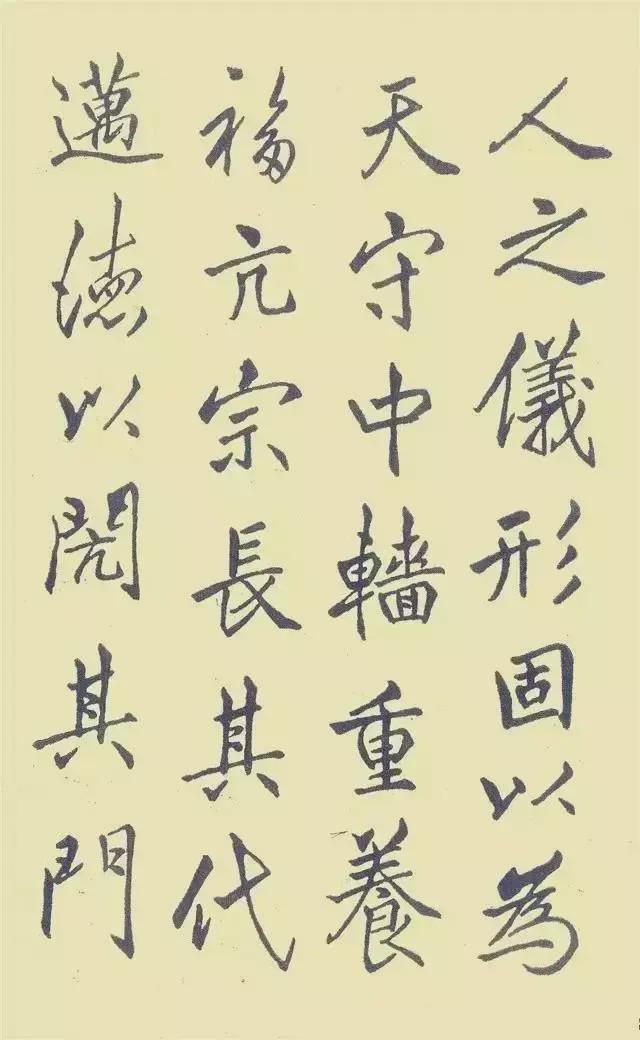 人之儀形固以為
天守中轖重養
福亢宗長其代
邁德以閌其門